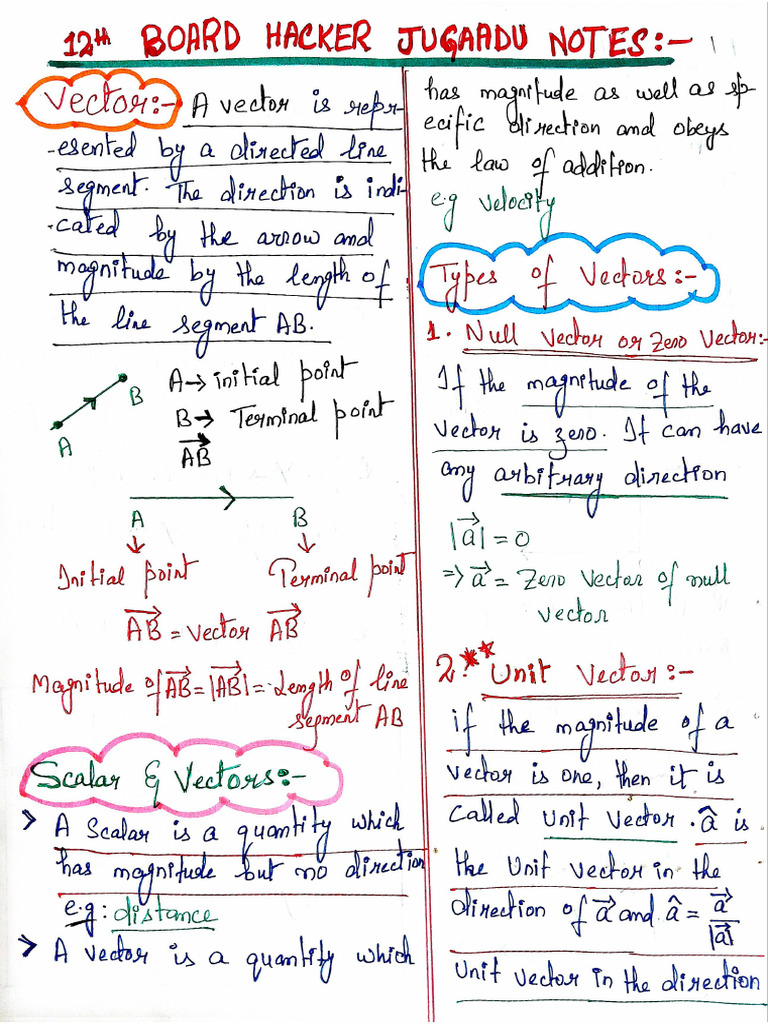 12th BOARD HACKER JUGAADU NOTES:-
Vector:- A vector is repr-
-esented by a directed line
segment. The direction is indi-
-cated by the arrow and
magnitude by the length of
the line segment AB.
A B
A→ initial point
B→ Terminal point
AB→
A B
Initial point Terminal point
AB→ = vector AB→
Magnitude of AB→ = |AB→| = Length of line
segment AB
Scalar & Vectors:-
> A Scalar is a quantity which
has magnitude but no direction
e.g: distance
> A vector is a quantity which
has magnitude as well as sp-
ecific direction and obeys
the law of addition.
e.g velocity
Types of Vectors:-
1. Null Vector or Zero Vector:-
If the magnitude of the
vector is zero. It can have
any arbitrary direction
|a→| = 0
⇒ a→ = Zero vector of null
vector
2.** Unit Vector:-
if the magnitude of a
vector is one, then it is
called unit vector. â is
the Unit vector in the
direction of a→ and â = a→/|a→|
Unit vector in the direction